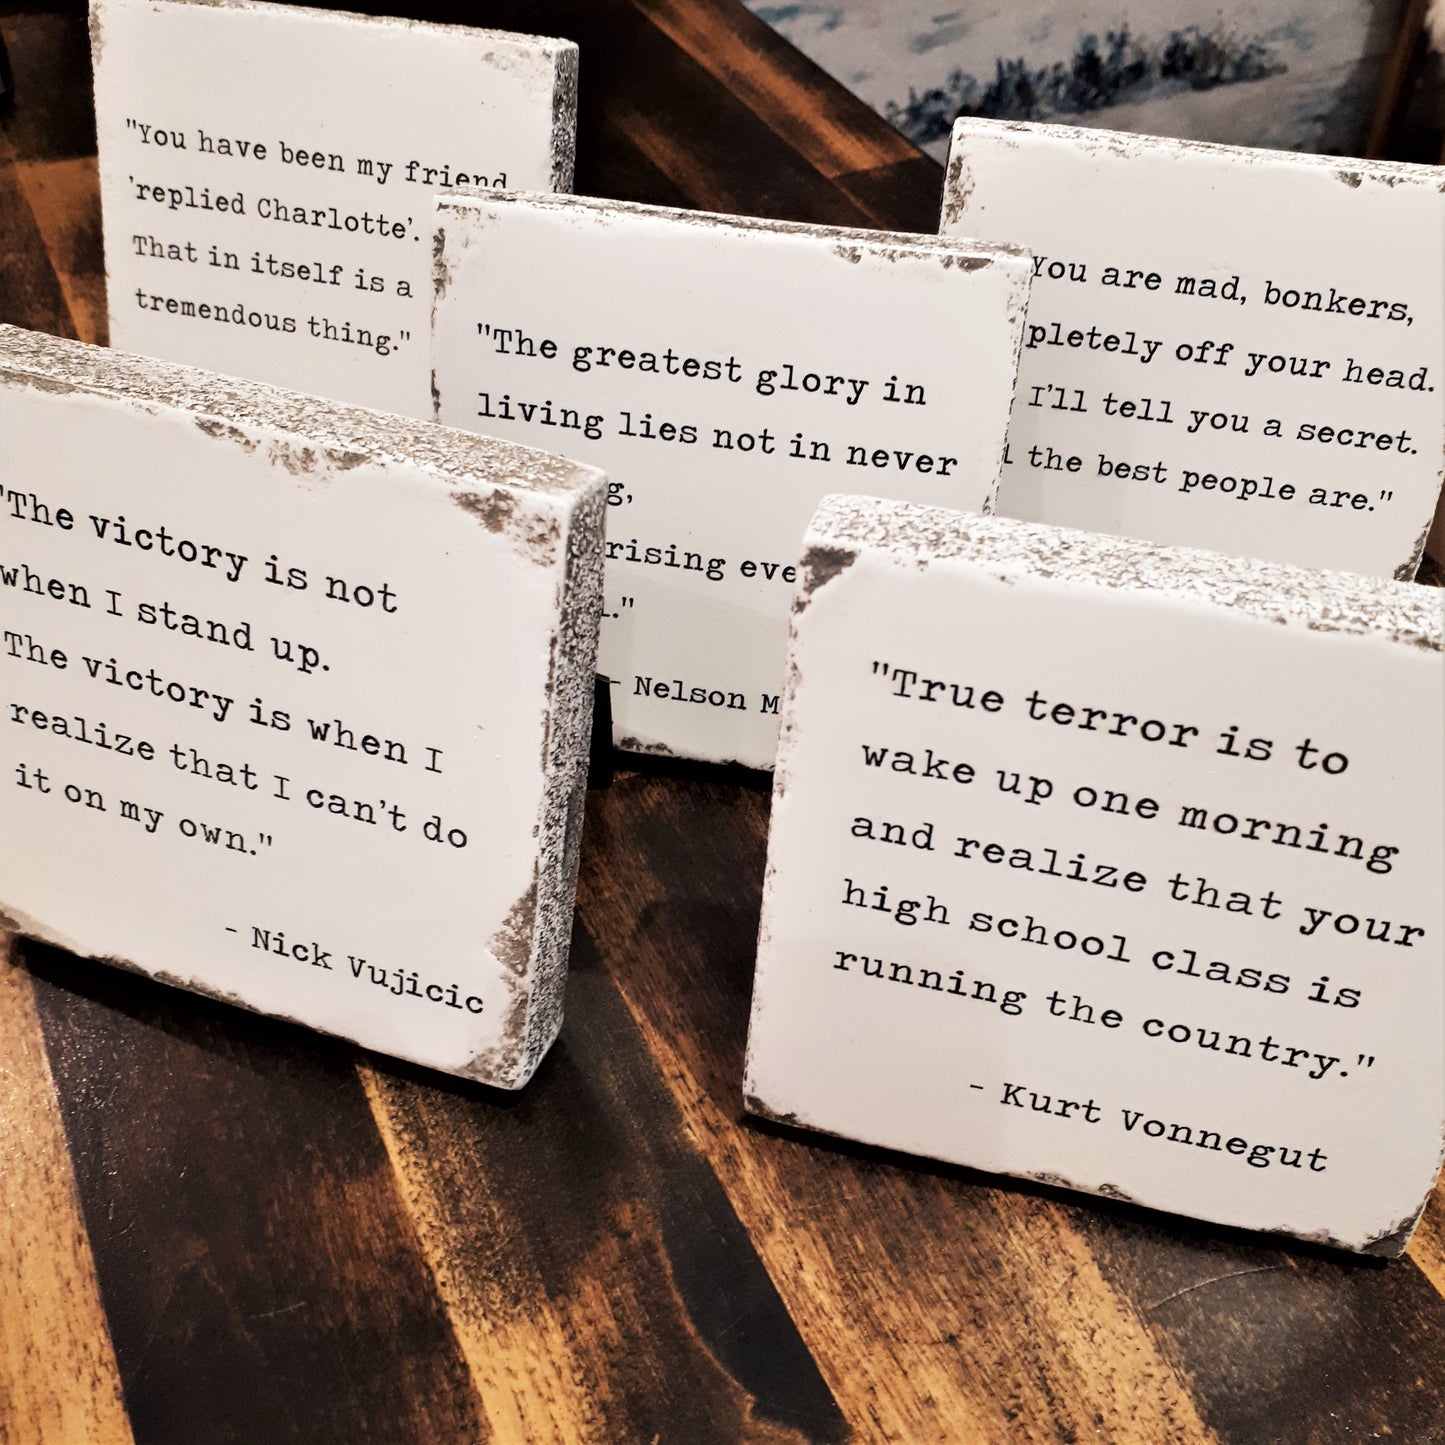 "You have been my friend
'replied Charlotte'.
That in itself is a
tremendous thing."
You are mad, bonkers,
off your head.
I'll tell you a secret.
the best people are."
"The greatest glory in
living lies not in never
rising
- Nelson
"The victory is not
when I stand up.
The victory is when I
realize that I can't do
it on my own."
- Nick Vujicic
"True terror is to
wake up one morning
and realize that your
high school class is
running the country."
- Kurt Vonnegut